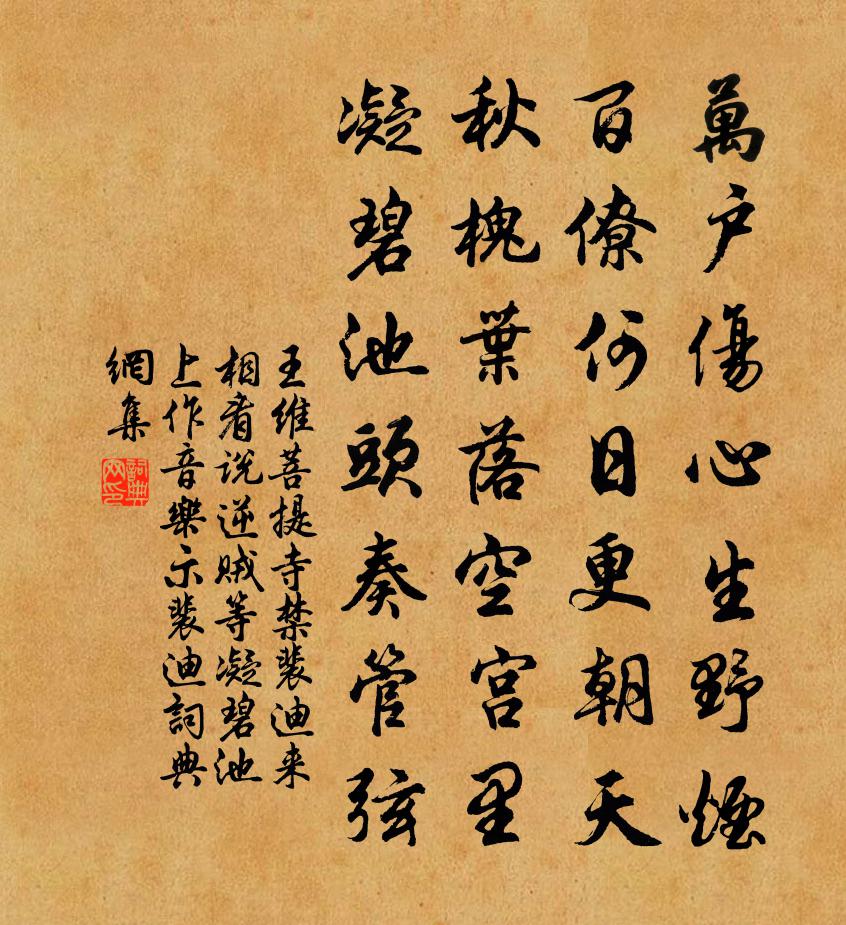 萬户傷心生野煙
百僚何日更朝天
秋槐葉落空宮里
凝碧池頭奏管弦
王維菩提寺禁裴迪来
相看説逆賊等凝碧池
上作音樂示裴迪詞典
網集
詞典
网印